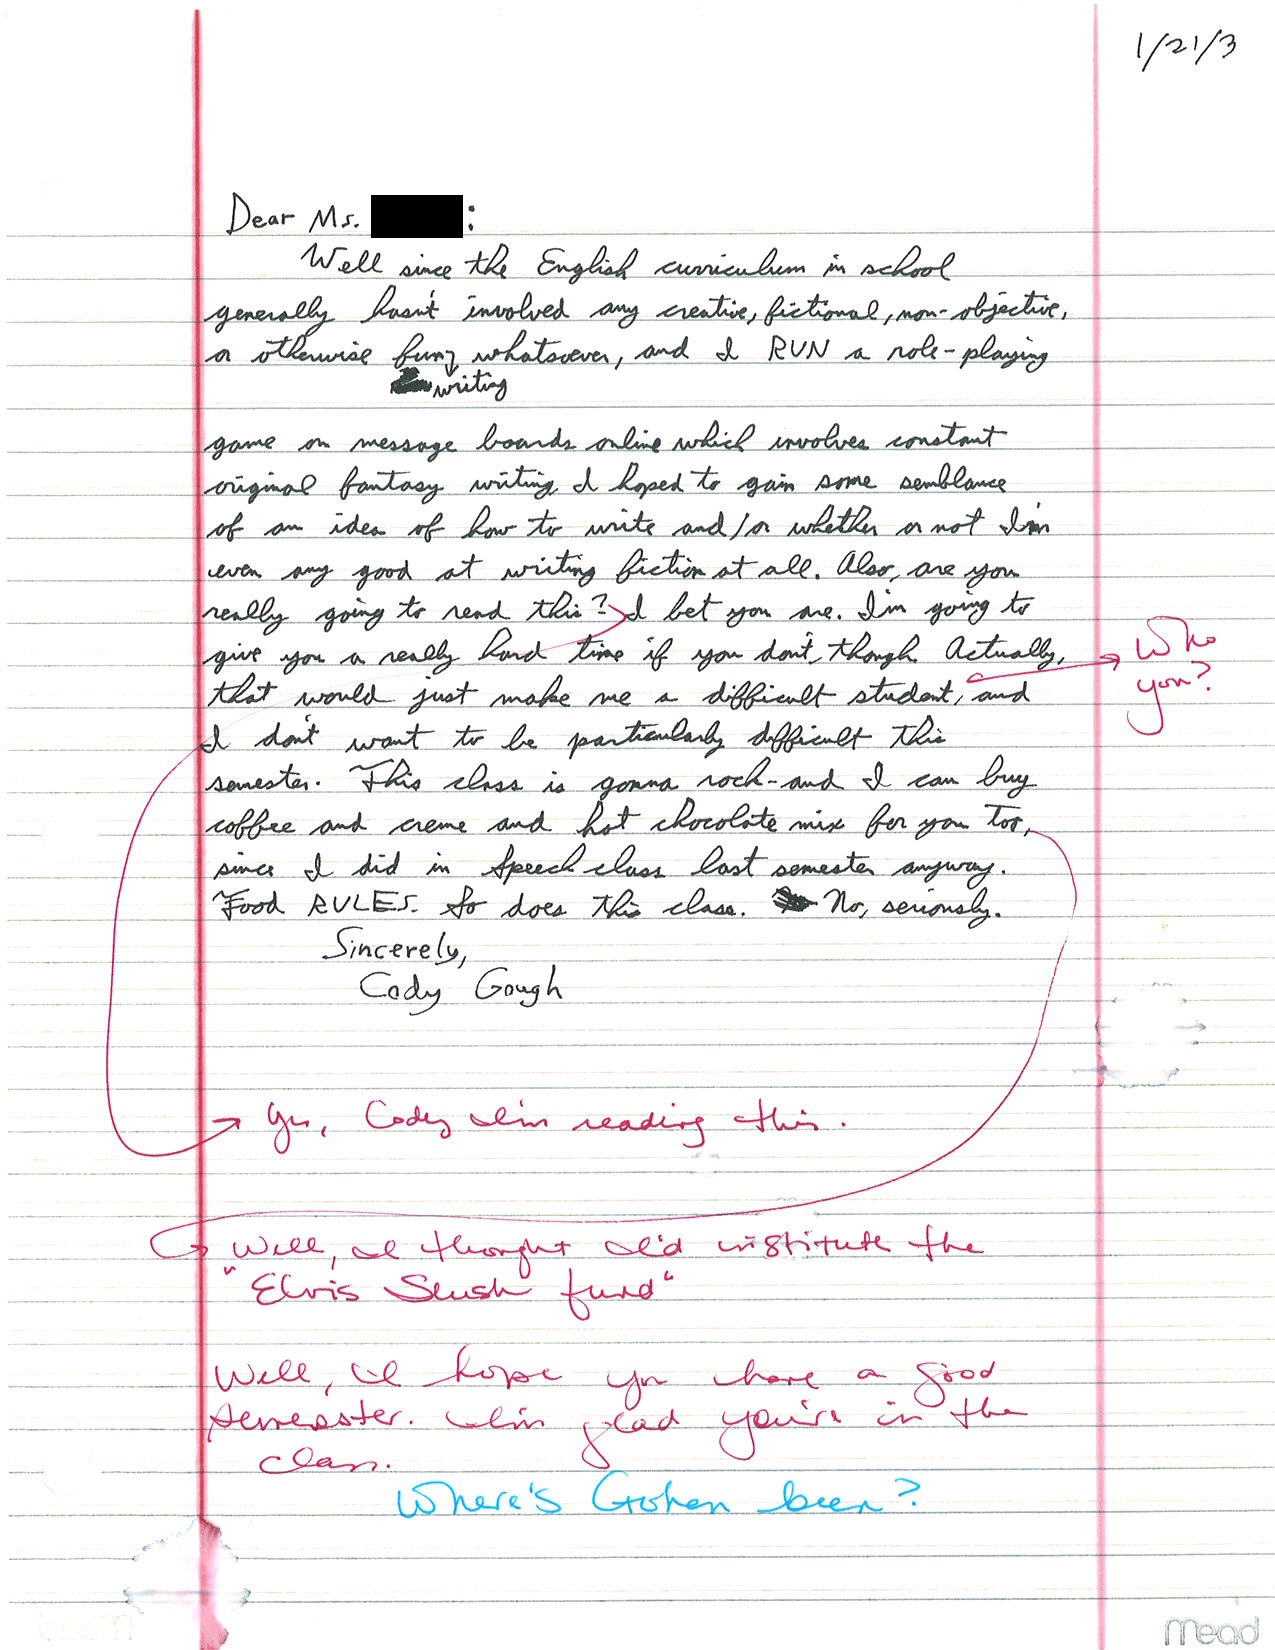 1/21/3
Dear Ms.        :
Well since the English curriculum in school
generally hasn't involved any creative, fictional, non-objective,
or otherwise funny whatsoever, and I RUN a role-playing
writing
game on message boards online which involves constant
original fantasy writing, I hoped to gain some semblance
of an idea of how to write and/or whether or not I'm
even any good at writing fiction at all. Also, are you
really going to read this? I bet you are. I'm going to
give you a really hard time if you don't, though. Actually,
that would just make me a difficult student, and
Who
you?
I don't want to be particularly difficult this
semester. This class is gonna rock-and I can buy
coffee and creme and hot chocolate mix for you too,
since I did in Speech class last semester anyway.
Food RULES. So does this class. No, seriously.
Sincerely,
Cody Gough
Yes, Cody I'm reading this.
Well, I thought I'd institute the
"Elvis Slush fund"
Well, I hope you have a good
semester. I'm glad you're in the
class.
Where's Gohan been?
Mead